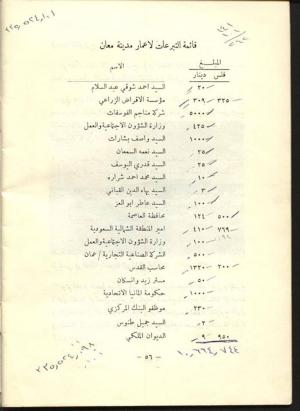 ٢٥,٥٢٤,١٠١
قائمة التبرعات لاعمار مدينة معان
المبلغ الاسم
فلس دينار
٢٠ر— السيد احمد شوقي عبد السلام
٣٢٥ر ٣٠٩ مؤسسة الاقراض الزراعي
٥٠٠٠ر— شركة مناجم الفوسفات
٤٢٥ر— وزارة الشؤون الاجتماعية والعمل
١٠٠٠ر— السيد واصف بشارات
٢٥ر— السيد نعمه السمعان
٢٥ر— السيد قدري اليوسف
١٠ر— السيد محمد احمد شراره
٣ر— السيد بهاء الدين القباني
١٠٠ر— السيد عاطر ابو العز
٥٠٠ر ١٢٤ محافظة العاصمة
٧٦٩ر ٤١٠ امير المنطقة الشمالية السعودية
١٠٠ر— وزارة الشؤون الاجتماعية والعمل
٥٠٠ر— الشركة الصناعية التجارية / عمان
٢٠٠ر ١٣٢٠ محاسب القدس
٥٠ر— مستر زيد وانسكان
١٠٠٠ر— حكومة المانيا الاتحادية
٢٣٠ر— موظفو البنك المركزي
٢ر— السيد جميل طنوس
٩٥٠ر ٩ الديوان الملكي
— ٥٦ —
١٠,٦٦٤,٧٤٤